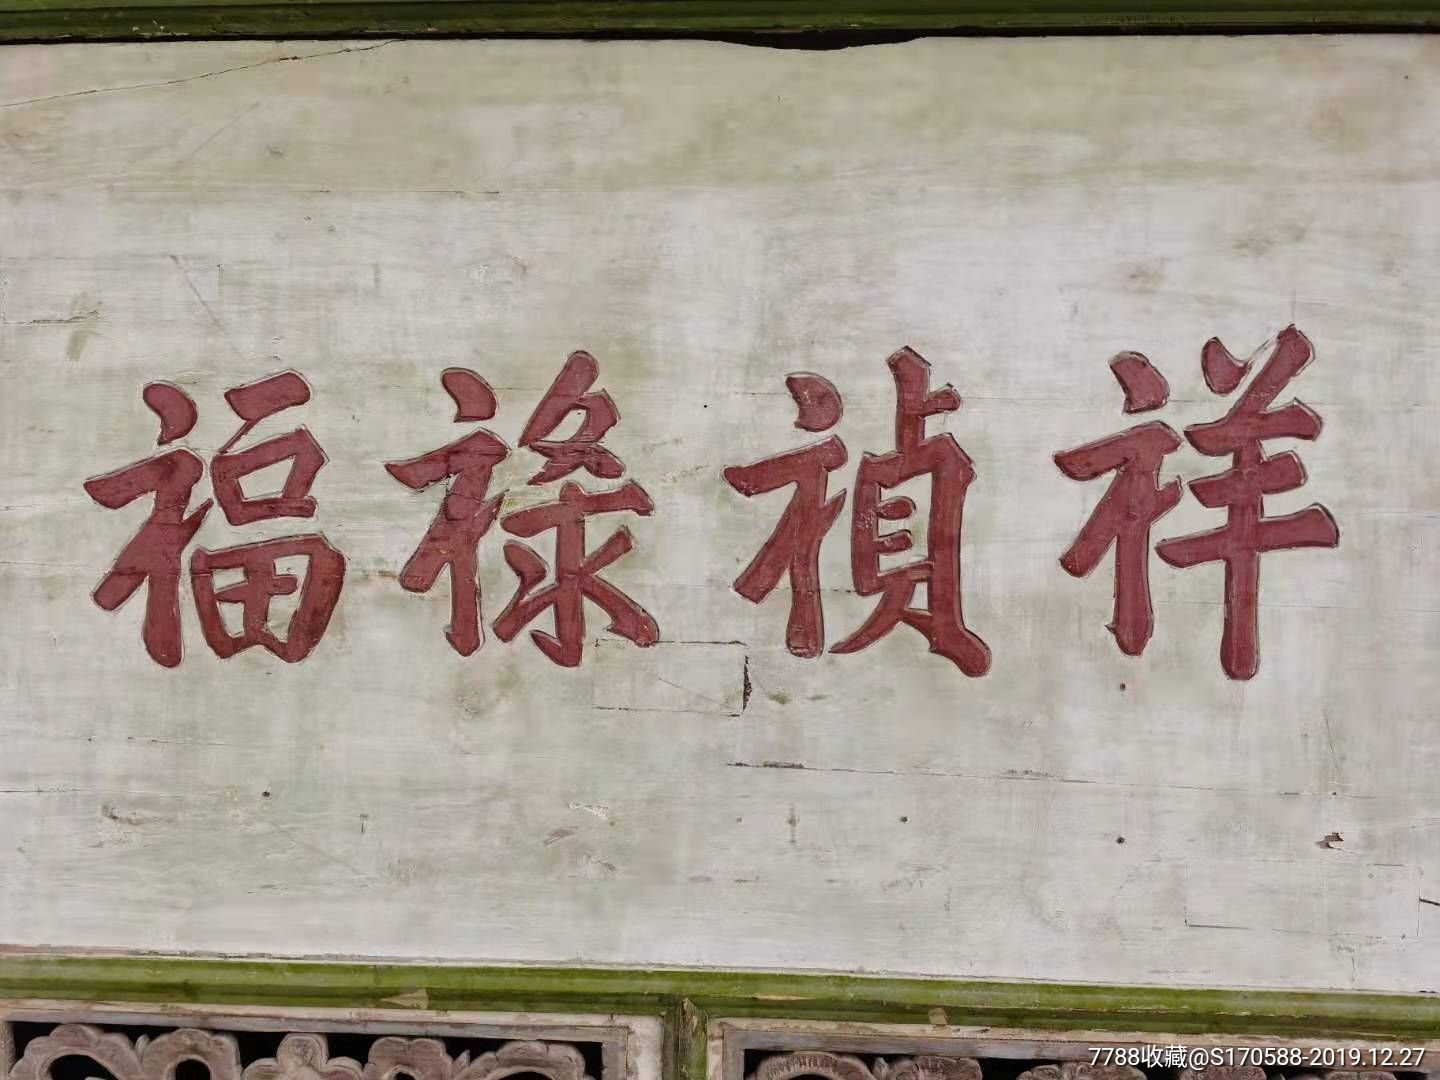 福祿禎祥
7788收藏@S170588-2019.12.27